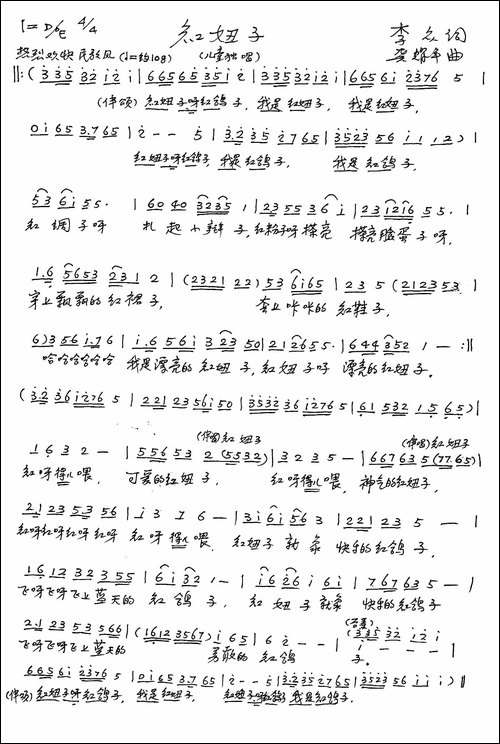 1=D/♭E 4/4 红妞子 李 词
热烈欢快 民族风 (♩=约108) (儿童独唱) 曲
‖:(3 3 5 3 2 1 2 1 | 6 6 5 6 5 3 5 1 2 | 3 3 5 3 2 1 2 1 | 6 6 5 6 1 2 3 7 6 5 |
(伴颂) 红妞子呀红鸽子, 我是红妞子, 我是红妞子,
0 1 6 5 3.7 6 5 | 2 - - 5 | 3.2 3 5 2 7 6 5 | 3 5 2 3 5 6 1 1 1 2) |
红妞子呀红鸽子, 我是红鸽子, 我是红鸽子.
5 3 6 1 5 5. | 6 0 4 0 3 2 3 5 1 | 2 3 5 5 3 6 1 | 2 3 1 2 1 6 5 5. |
红绸子呀 扎起小辫子, 红粉子呀擦亮 擦亮脸蛋子呀,
1.6 5 6 5 3 2 3 1 2 | (2 3 2 1 2 2) 5 3 6 1 6 5 | 2 3 5 (2 1 2 3 5 3. |
穿上飘飘的红裙子, 套上咔咔的红鞋子,
6) 3 5 6 1.7 6 | 1.6 5 6 1 3 2 3 5 0 | 2 1 2 6 5 5. | 6 4 4 3 5 2 1 - :‖
哈哈哈哈哈哈 我是漂亮的红妞子, 红妞子呀 漂亮的红妞子.
(3.2 3 6 1 2 7 6 5 | 2 2 1 2 3 5 6 1 5 0 | 3 5 3 2 3 6 1 2 7 6 5 | 6 1 5 3 2 1 5 6 5) |
(伴唱)红妞子 (伴唱)红妞子
1 6 3 2 - | 5 5 6 5 3 2 (5 5 3 2) | 3 2 3 5 - | 6 6 7 6 3 5 (7 7 6 5) |
红呀得儿喂, 可爱的红妞子, 红呀得儿喂, 神气的红妞子,
2.1 2 3 5 3 5 6 | 1 3 7 6 - | 3 1 6 1 5 6 3 | 2 2 1 2 3 5 - |
红呀红呀红呀红呀 红呀得儿喂 红妞子就象 快乐的红鸽子,
1 6 1 2 3 2 3 5 5 | 6 1 3 2 1 - | 1 6 2 6 1 6 1 | 7 6 7 6 3 5 - |
飞呀飞呀飞上蓝天的 红鸽子, 红妞子就象 快乐的红鸽子
2.1 2 3 5 3 5 6 6 | (1 6 1 2 3 5 6 7) 1 6 5 | 6 2 - - | (3 3 5 3 2 1 2 1
飞呀飞呀飞上蓝天的 勇敢的红鸽 子.
6 6 5 6 1 2 3 7 6 5 | 0 1 6 5 3.7 6 5 | 2 - - 5 | 3.2 3 5 2 7 6 5 | 3 5 2 3 5 6 1 1 1) ‖
(伴颂) 红妞子呀红鸽子, 我是红妞子, 红妞子呀红鸽子 我是红鸽子.